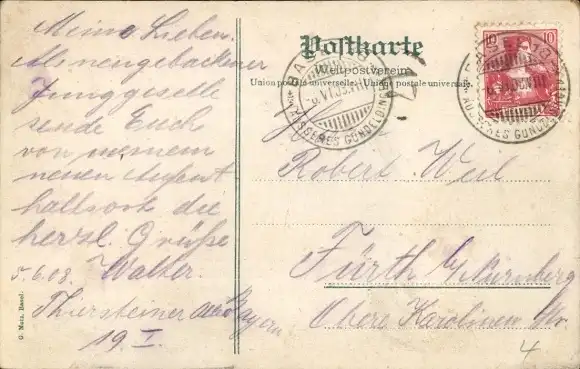 Postkarte
Weltpostverein
Union postale universelle. - Unione postale universale.
Meine Lieben.
Als neugebackener
Junggeselle
sende Euch
von meinem
neuen Aufent
haltsort die
herzl. Grüße
5.6.08. Walter.
Thiersteiner
19 I.
Robert Weil
Fürth b/Nürnberg
Bayern
Obere Karolinen Str.
4
10 10
BA
ÄUSSERES GUNDELDINGEN
G. Metz, Basel.